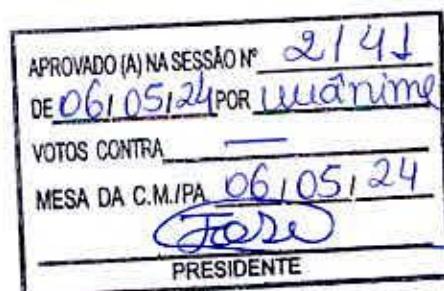 APROVADO (A) NA SESSÃO Nº 2141
DE 06/05/24 POR unânime
VOTOS CONTRA —
MESA DA C.M./PA 06/05/24
PRESIDENTE